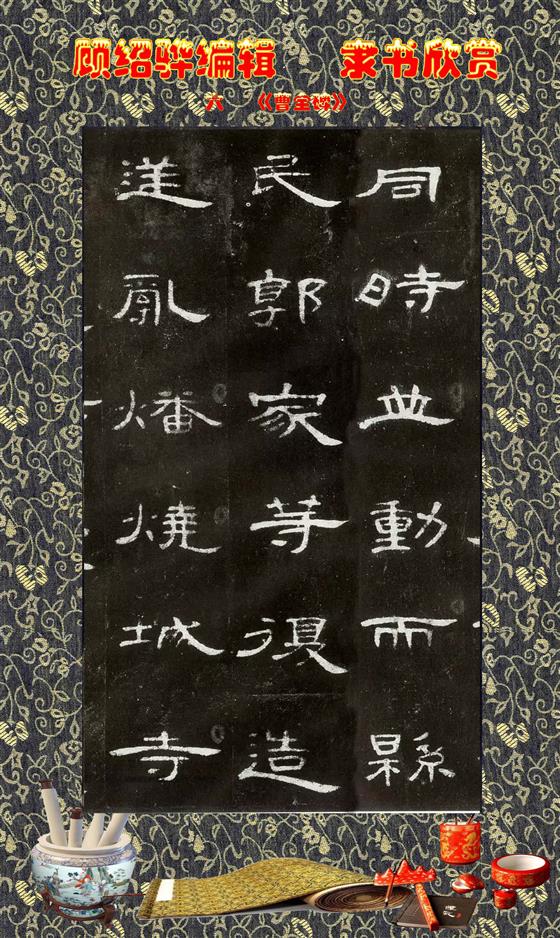 顾绍骅编辑 隶书欣赏
六 《曹全碑》
同時並動而縣
民郭家等復造
逆亂燔燒城寺